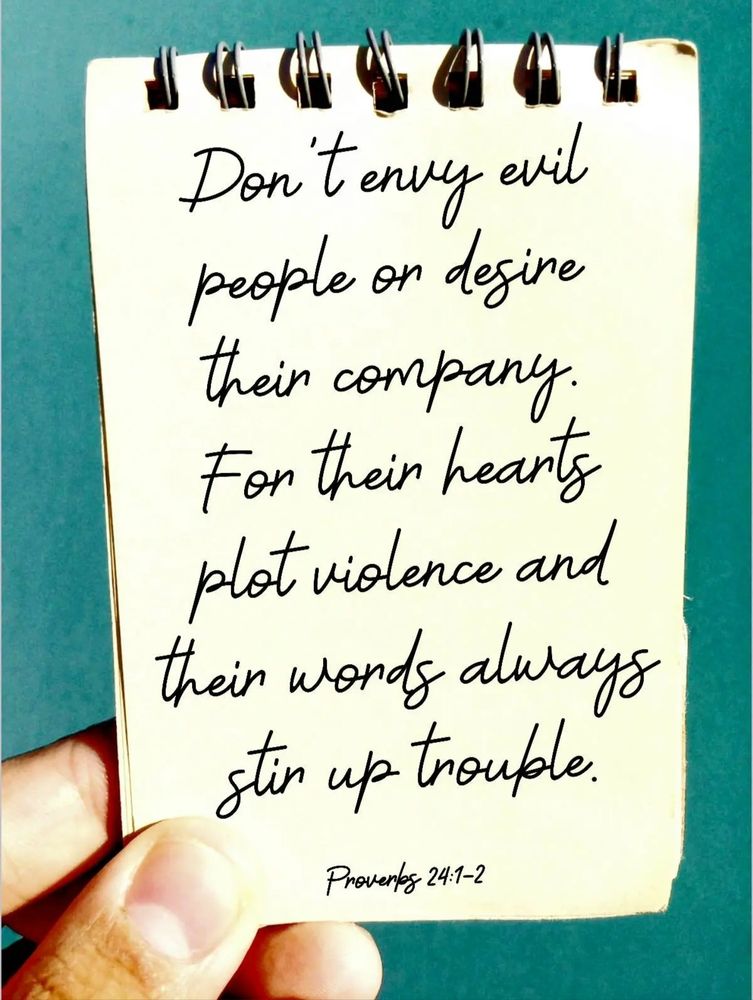 Don't envy evil
people or desire
their company.
For their hearts
plot violence and
their words always
stir up trouble.
Proverbs 24:1-2